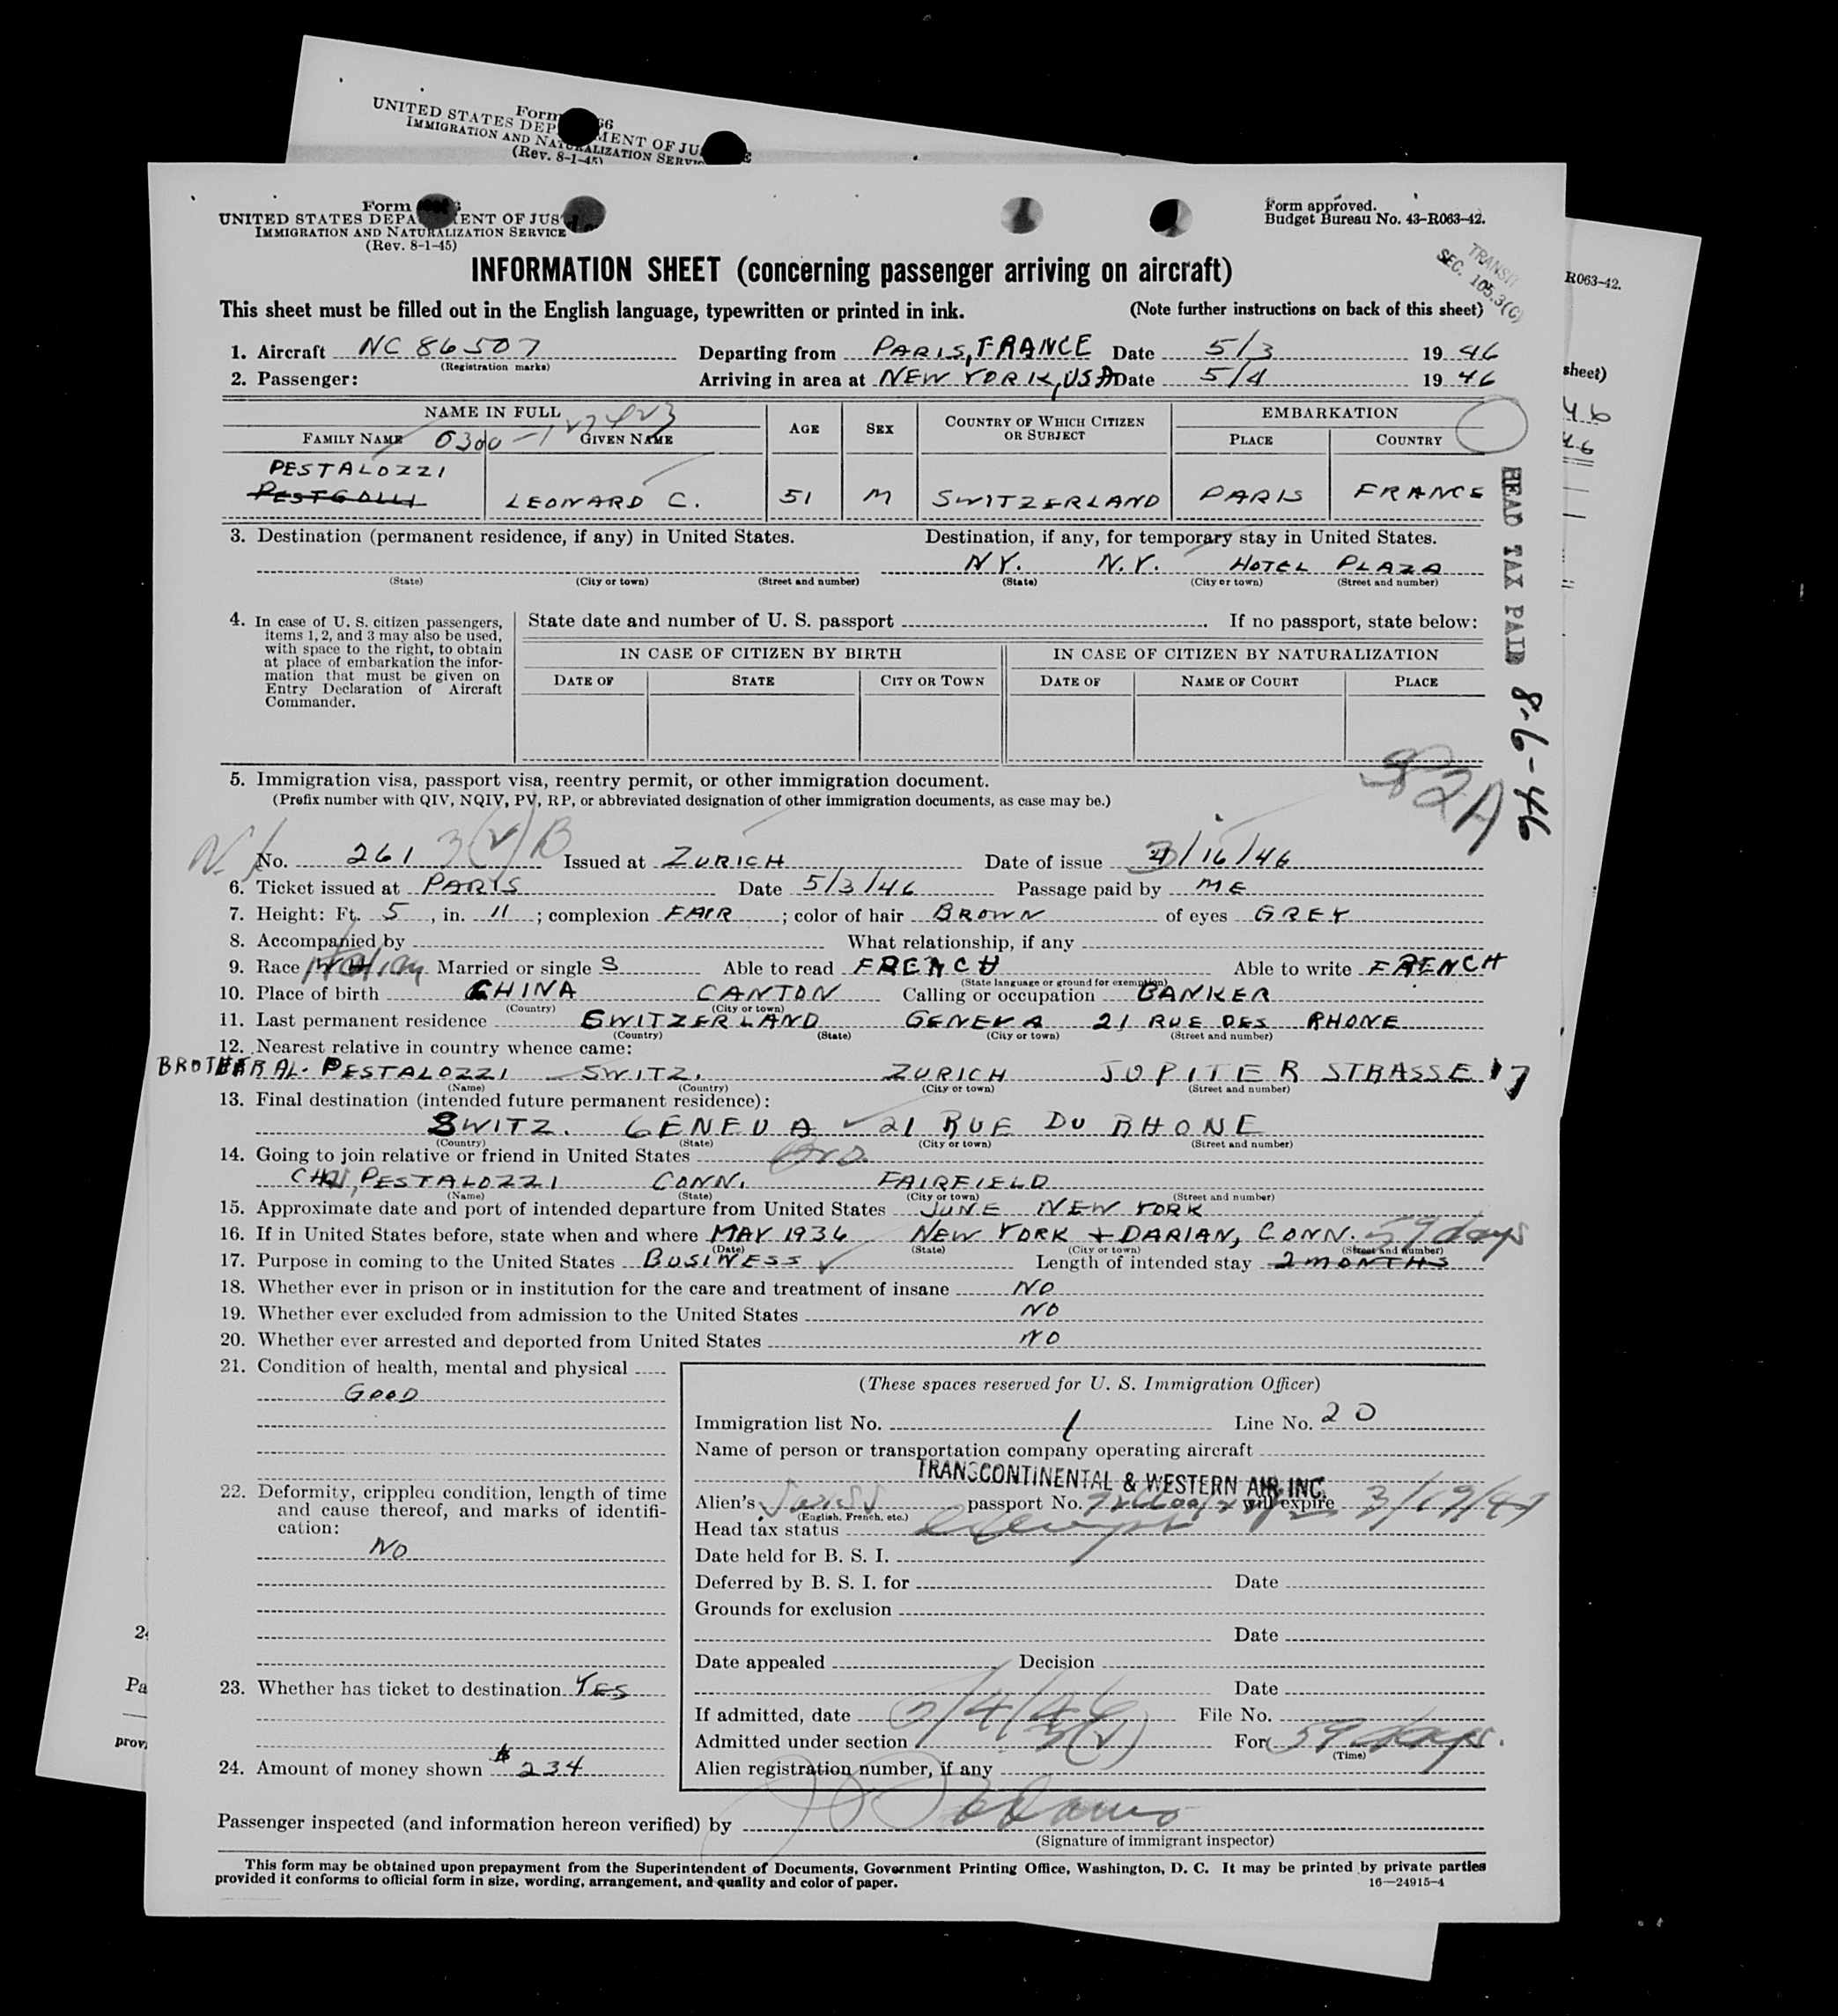 UNITED STATES DEP MENT OF JU
IMMIGRATION AND NATURALIZATION SERV
(Rev. 8-1-45)
Form
UNITED STATES DEPA ENT OF JUS
IMMIGRATION AND NATURALIZATION SERVICE
(Rev. 8-1-45)
Form approved.
Budget Bureau No. 43-R063-42.
R063-42.
TRANSIT
SEC. 105.3(C)
INFORMATION SHEET (concerning passenger arriving on aircraft)
This sheet must be filled out in the English language, typewritten or printed in ink. (Note further instructions on back of this sheet)
sheet)
1. Aircraft NC 86507 Departing from PARIS, FRANCE Date 5/3 1946
(Registration marks)
2. Passenger: Arriving in area at NEW YORK, USA Date 5/4 1946
46
46
NAME IN FULL AGE SEX COUNTRY OF WHICH CITIZEN OR SUBJECT EMBARKATION
FAMILY NAME 0300 GIVEN NAME PLACE COUNTRY
PESTALOZZI
LEONARD C. 51 M SWITZERLAND PARIS FRANCE
HEAD TAX PAID 8-6-46
3. Destination (permanent residence, if any) in United States. Destination, if any, for temporary stay in United States.
N.Y. N.Y. HOTEL PLAZA
(State) (City or town) (Street and number) (State) (City or town) (Street and number)
4. In case of U. S. citizen passengers, items 1, 2, and 3 may also be used, with space to the right, to obtain at place of embarkation the information that must be given on Entry Declaration of Aircraft Commander.
State date and number of U. S. passport If no passport, state below:
IN CASE OF CITIZEN BY BIRTH IN CASE OF CITIZEN BY NATURALIZATION
DATE OF STATE CITY OR TOWN DATE OF NAME OF COURT PLACE
5. Immigration visa, passport visa, reentry permit, or other immigration document.
(Prefix number with QIV, NQIV, PV, RP, or abbreviated designation of other immigration documents, as case may be.)
82A
No. 261 3(V)B Issued at ZURICH Date of issue /16/46
6. Ticket issued at PARIS Date 5/3/46 Passage paid by ME
7. Height: Ft. 5, in. 11; complexion FAIR; color of hair BROWN of eyes GREY
8. Accompanied by What relationship, if any
9. Race Italian Married or single S Able to read FRENCH Able to write FRENCH
(State language or ground for exemption)
10. Place of birth CHINA CANTON Calling or occupation BANKER
(Country) (City or town)
11. Last permanent residence SWITZERLAND GENEVA 21 RUE DES RHONE
(Country) (State) (City or town) (Street and number)
12. Nearest relative in country whence came:
BROTHER AL. PESTALOZZI SWITZ. ZURICH JUPITER STRASSE 17
(Name) (Country) (City or town) (Street and number)
13. Final destination (intended future permanent residence):
SWITZ. GENEVA 21 RUE DU RHONE
(Country) (State) (City or town) (Street and number)
14. Going to join relative or friend in United States
PESTALOZZI CONN. FAIRFIELD
(Name) (State) (City or town) (Street and number)
15. Approximate date and port of intended departure from United States JUNE NEW YORK
16. If in United States before, state when and where MAY 1936 NEW YORK + DARIAN, CONN. 59 days
(Date) (State) (City or town) (Street and number)
17. Purpose in coming to the United States BUSINESS Length of intended stay 2 MONTHS
18. Whether ever in prison or in institution for the care and treatment of insane NO
19. Whether ever excluded from admission to the United States NO
20. Whether ever arrested and deported from United States NO
21. Condition of health, mental and physical
GOOD
22. Deformity, crippled condition, length of time and cause thereof, and marks of identification:
NO
23. Whether has ticket to destination YES
24. Amount of money shown $234
(These spaces reserved for U. S. Immigration Officer)
Immigration list No. 1 Line No. 20
Name of person or transportation company operating aircraft
TRANSCONTINENTAL & WESTERN AIR, INC.
Alien's Swiss passport No. will expire 3/19/49
(English, French, etc.)
Head tax status
Date held for B. S. I.
Deferred by B. S. I. for Date
Grounds for exclusion
Date
Date appealed Decision
Date
If admitted, date 5/4/46 File No.
Admitted under section 3(V) For 59 days.
(Time)
Alien registration number, if any
24
Pa
prov
Passenger inspected (and information hereon verified) by
(Signature of immigrant inspector)
This form may be obtained upon prepayment from the Superintendent of Documents, Government Printing Office, Washington, D. C. It may be printed by private parties
provided it conforms to official form in size, wording, arrangement, and quality and color of paper. 16—24915-4